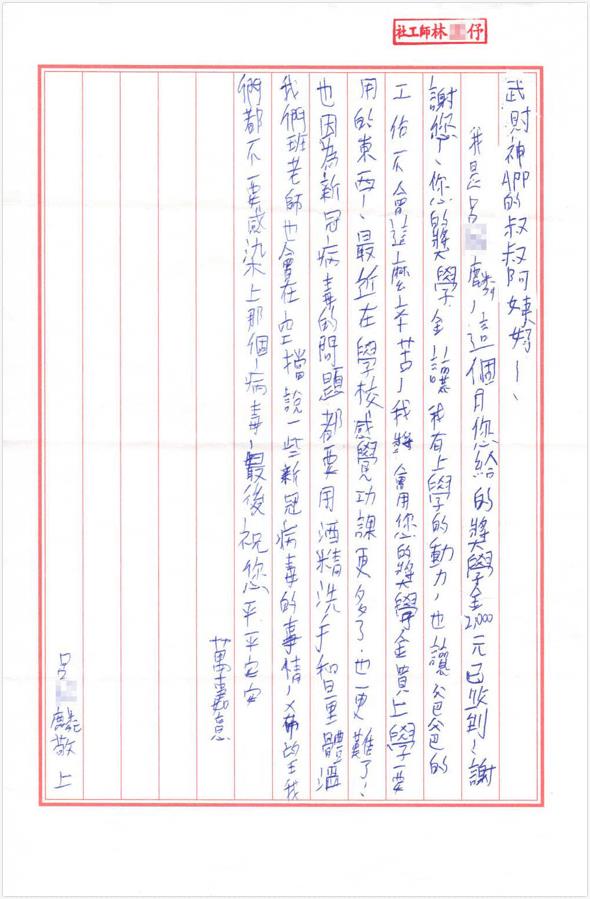 社工師林 伃
武財神APP的叔叔阿姨好、
我是呂 麟,這個月您給的獎學金2,000元已收到,謝
謝您、您的獎學金讓我有上學的動力,也讓爸爸的
工作不會這麼辛苦,我將會用您的獎學金買上學要
用的東西、最近在學校感覺功課更多了也更難了、
也因為新冠病毒的問題都要用酒精洗手和量體溫
我們班老師也會在空擋說一些新冠病毒的事情,希望我
們都不要感染上那個病毒,最後祝您平平安安
萬事如意
呂 麟敬上